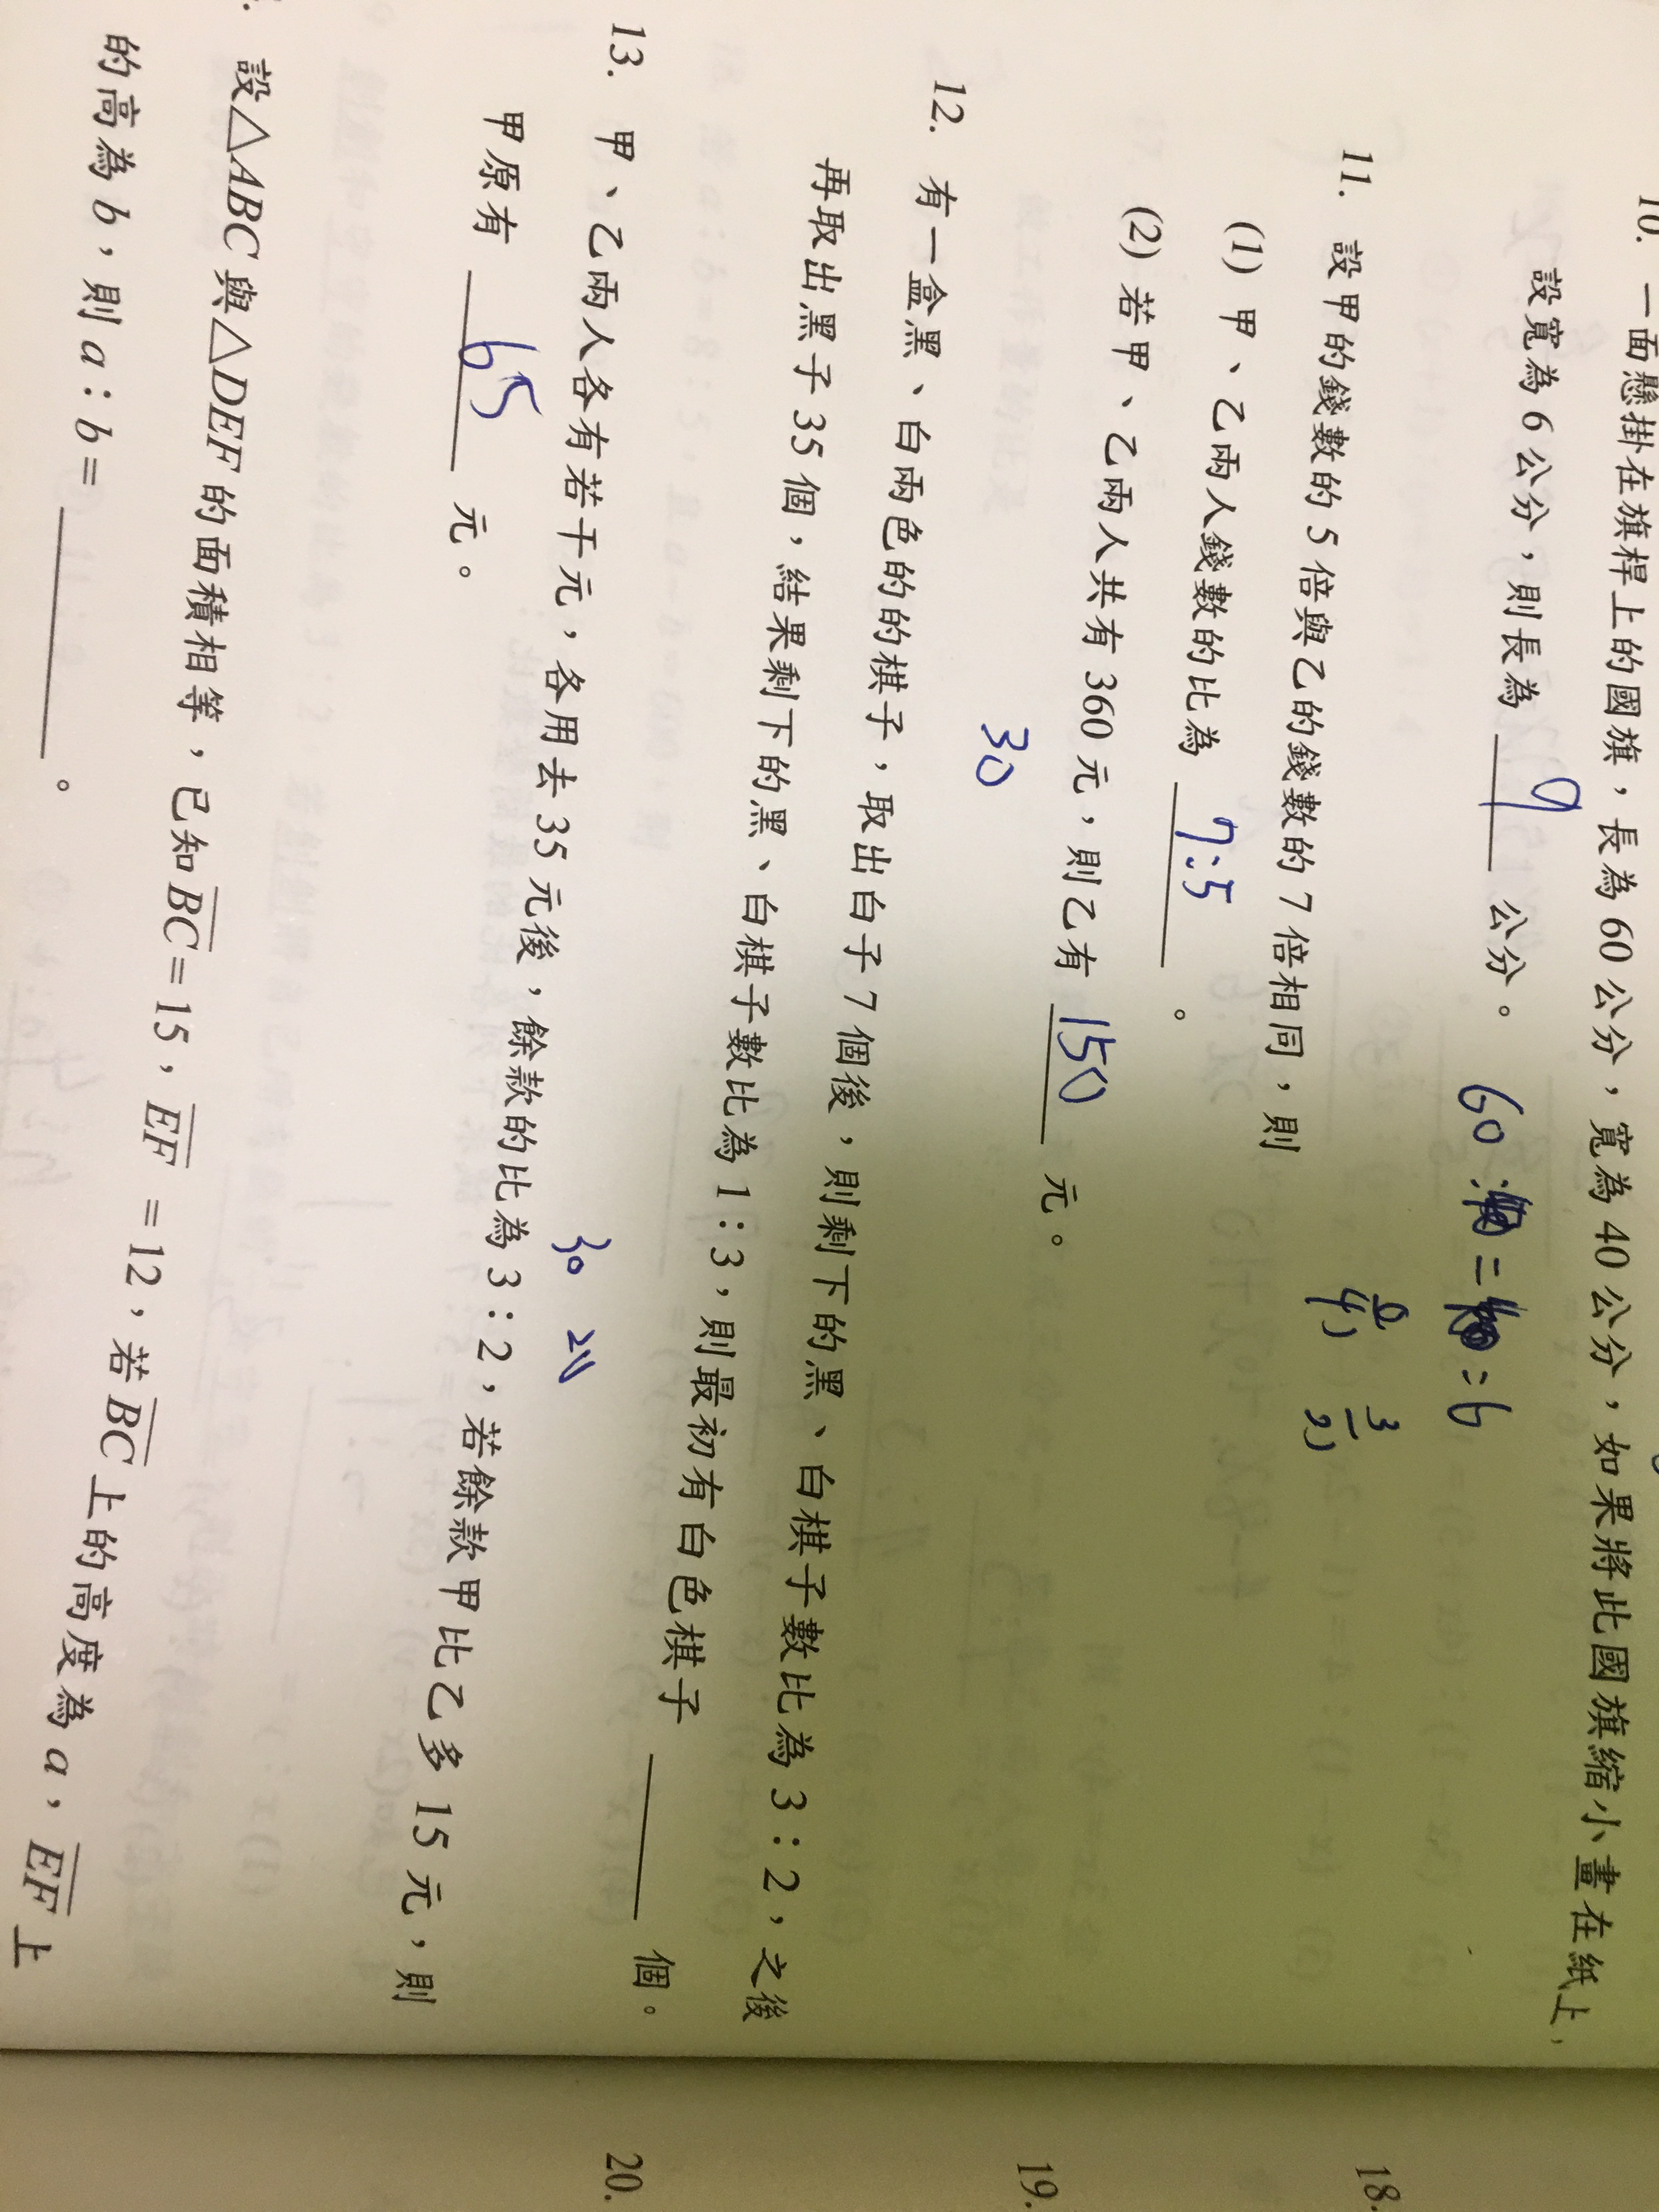 10. 一面懸掛在旗桿上的國旗，長為 60 公分，寬為 40 公分，如果將此國旗縮小畫在紙上，
設寬為 6 公分，則長為 9 公分。
60 : = : 6
11. 設甲的錢數的 5 倍與乙的錢數的 7 倍相同，則
(1) 甲、乙兩人錢數的比為 7:5 。
(2) 若甲、乙兩人共有 360 元，則乙有 150 元。
30
12. 有一盒黑、白兩色的的棋子，取出白子 7 個後，則剩下的黑、白棋子數比為 3：2，之後
再取出黑子 35 個，結果剩下的黑、白棋子數比為 1：3，則最初有白色棋子 個。
30
13. 甲、乙兩人各有若干元，各用去 35 元後，餘款的比為 3：2，若餘款甲比乙多 15 元，則
甲原有 65 元。
設△ABC 與△DEF 的面積相等，已知 BC = 15，EF = 12，若 BC 上的高度為 a，EF 上
的高為 b，則 a：b = 。
18.
19.
20.